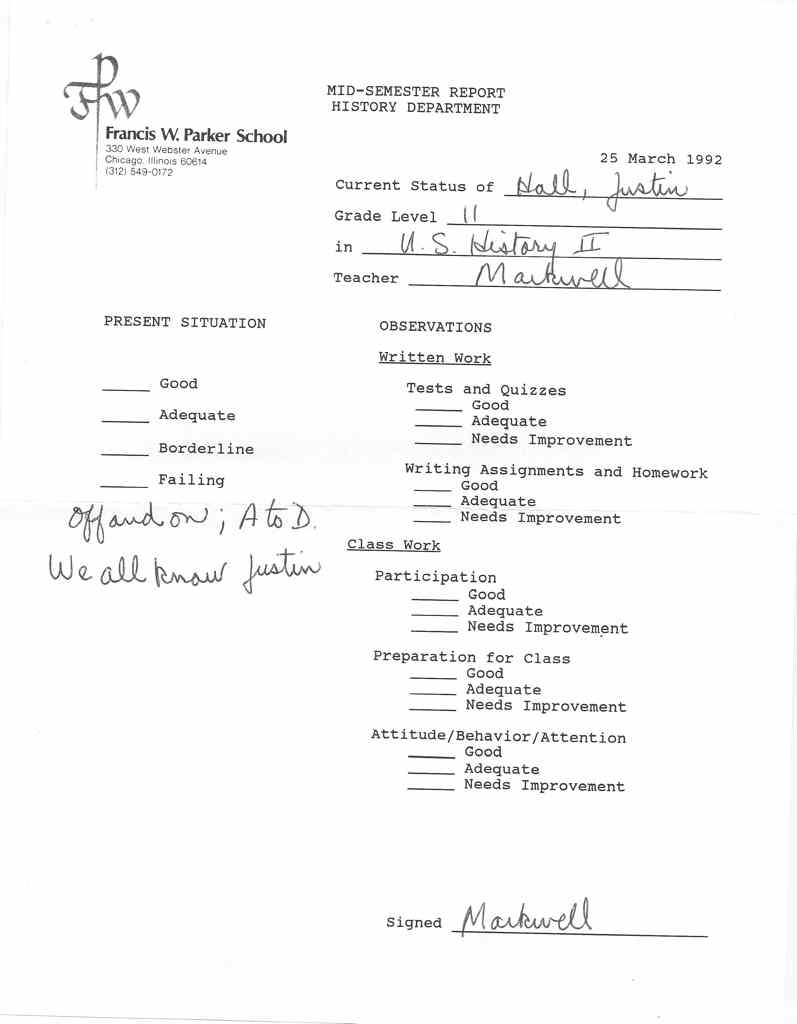 FPW
Francis W. Parker School
330 West Webster Avenue
Chicago, Illinois 60614
(312) 549-0172
MID-SEMESTER REPORT
HISTORY DEPARTMENT
25 March 1992
Current Status of Hall, Justin
Grade Level 11
in U.S. History II
Teacher Markwell
PRESENT SITUATION
_____ Good
_____ Adequate
_____ Borderline
_____ Failing
Off and on; A to D.
We all know Justin
OBSERVATIONS
Written Work
Tests and Quizzes
_____ Good
_____ Adequate
_____ Needs Improvement
Writing Assignments and Homework
____ Good
____ Adequate
____ Needs Improvement
Class Work
Participation
_____ Good
_____ Adequate
_____ Needs Improvement
Preparation for Class
_____ Good
_____ Adequate
_____ Needs Improvement
Attitude/Behavior/Attention
_____ Good
_____ Adequate
_____ Needs Improvement
Signed Markwell